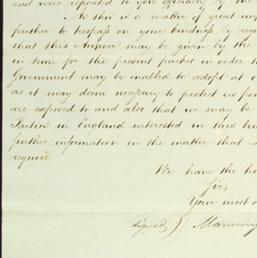 and were repeated to you officially by the
As this is a matter of great imp
further to trespass on your kindness by reque
that this Answer may be given by the
in time for the present packet in order th
Government may be enabled to adopt at o
as it may deem necessary to protect us from
are exposed to and also that we may be
Parties in England interested in this bus
further information in the matter that
require
We have the ho
Sir,
Your most o
(Signed) Manning